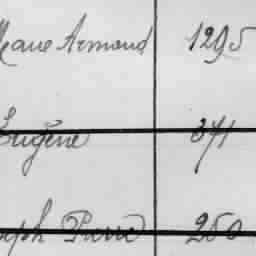 Marie Armand 1295
Eugène 371
Joseph Pierre 250